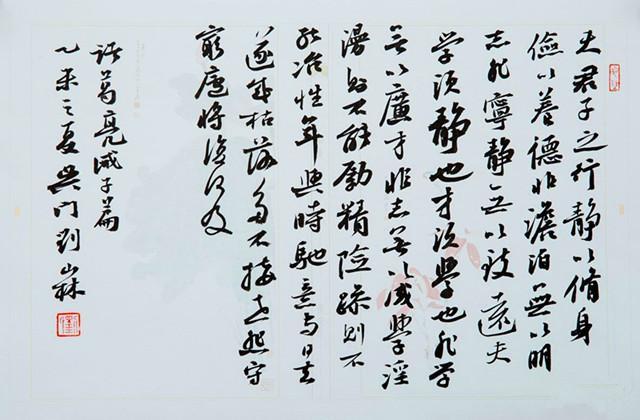 夫君子之行静以脩身
儉以養德非澹泊無以明
志非寧静無以致遠夫
学須静也才須學也非学
無以廣才非志無以成學淫
漫則不能勵精險躁則不
能冶性年與時馳意与日去
遂成枯落多不接世悲守
窮廬將復何及
諸葛亮诫子篇
乙未之夏吳门劉